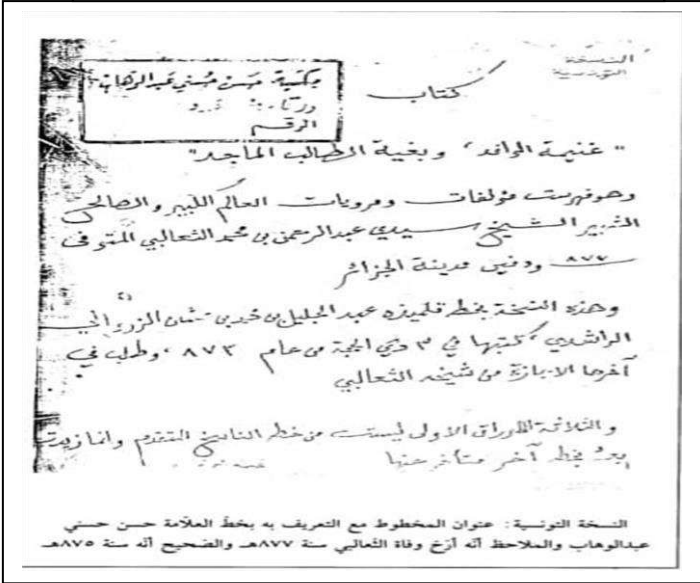 النسخة
التونسية
مكتبة حسن حسني عبدالوهاب
الرقم
كتاب
" غنيمة الوافد، وبغية الطالب الماجد"
وهو فهرست مؤلفات ومرويات العالم الكبير والصالح
الشهير الشيخ سيدي عبدالرحمن بن محمد الثعالبي المتوفى
٨٧٧ ودفين مدينة الجزائر
وهذه النسخة بخط تلميذه عبد الجليل بن محمد بن عثمان الزرو الي
الراشدي، كتبها في ٣ ذي الحجة من عام ٨٧٣، وطلب في
آخرها الاجازة من شيخه الثعالبي
والثلاثة الاوراق الاولى ليست من خط الناسخ المتقدم وانما زيدت
بعد بخط آخر متأخر عنها
النسخة التونسية: عنوان المخطوط مع التعريف به بخطّ العلاّمة حسن حسني
عبدالوهاب والملاحظ أنّه أرّخ وفاة الثعالبي سنة ٨٧٧هـ والصحيح أنّه سنة ٨٧٥هـ